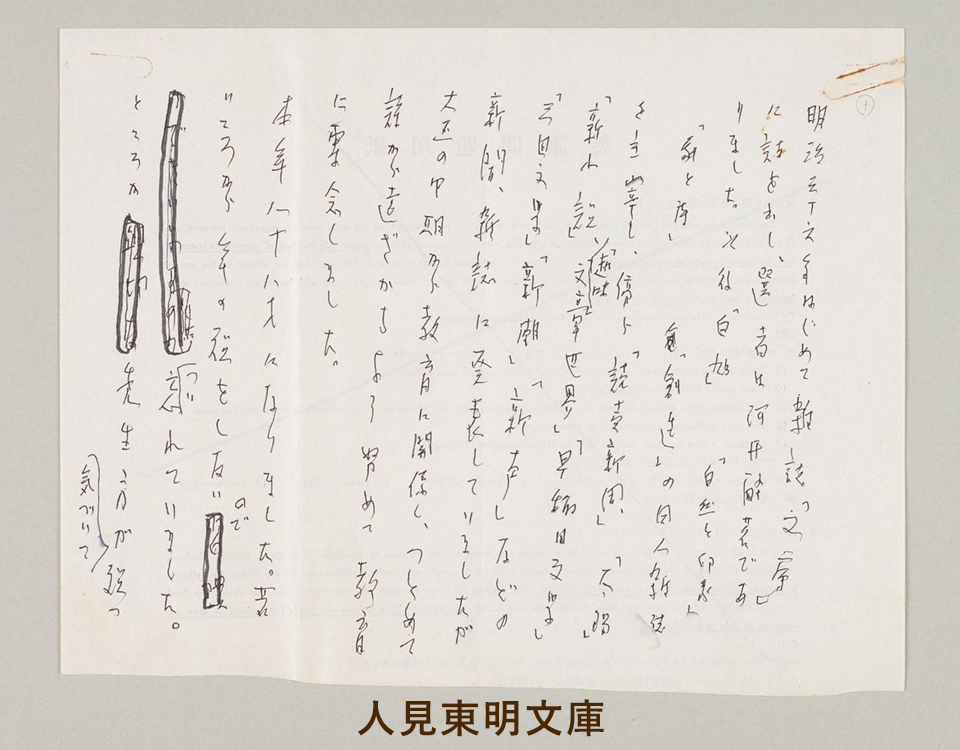 ①
明治三十六年はじめて雑誌「文庫」
に詩を出し、選者は河井酔茗であ
りました。その後「白鳩」「自然と印象」
「劇と詩」「創造」の同人雑誌
を主宰し、傍ら「読売新聞」「太陽」
「新小説」「趣味」「文章世界」「早稲田文学」
「三田文学」「新潮」「新声」などの
新聞、雑誌に発表していましたが
大正の中期から教育に関係し、つとめて
詩から遠ざかるよう努めて教育
に専念しました。
本年八十八才になりました。若
いころから年の話をしないので
忘れていました。
ところが先生方が
気づいて
人見東明文庫